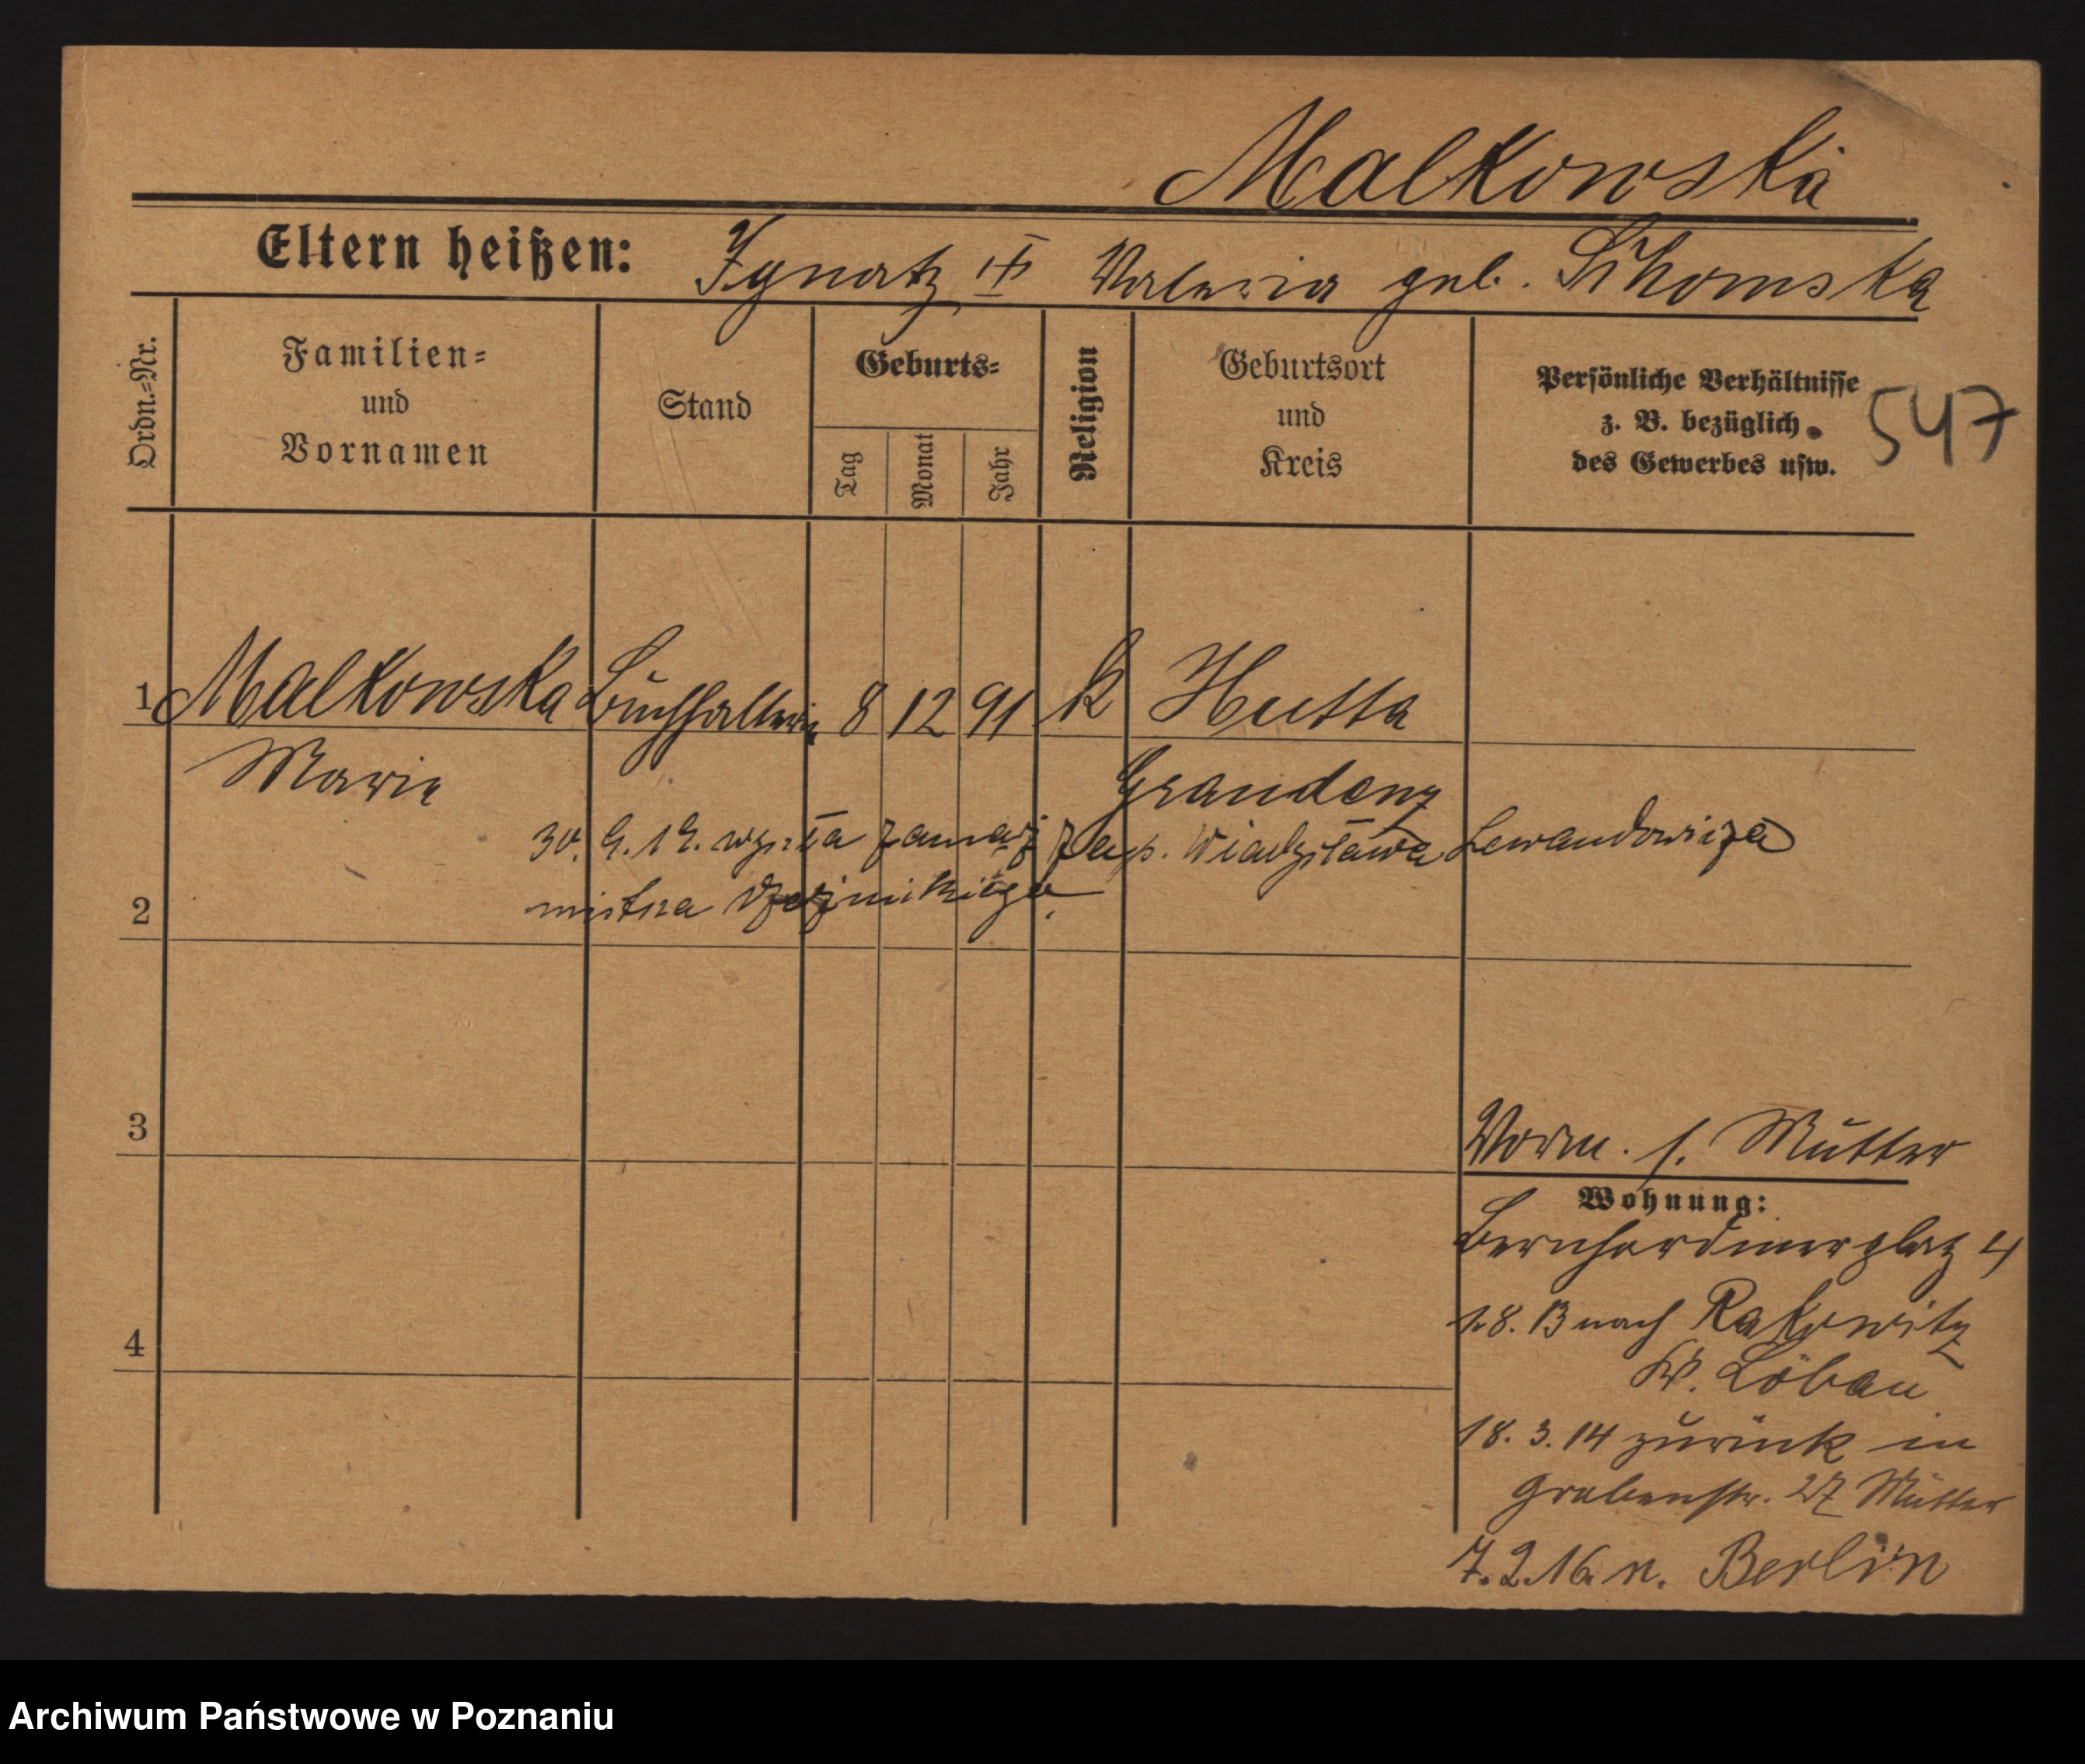 Malkowska
Eltern heißen: Ignatz Valeria geb. Sikomska
Ordn.=Nr.
Familien=
und
Vornamen
Stand
Geburts=
Tag
Monat
Jahr
Religion
Geburtsort
und
Kreis
Persönliche Verhältnisse
z. B. bezüglich
des Gewerbes usw.
547
1 Malkowska Buchhalterin 8 12 91 k Hutta
Marie Graudenz
30. 9. 19. wyszła zamąż za Władysława Lewandowicza
2 mistrza rzeźnickiego.
3 Vorm. s. Mutter
Wohnung:
Bernhardinerplatz 4
1.8.13 nach Rakowitz
4 Kr. Löbau
18.3.14 zurück in
Grabenstr. 27 Mutter
7.2.16. n. Berlin
Archiwum Państwowe w Poznaniu